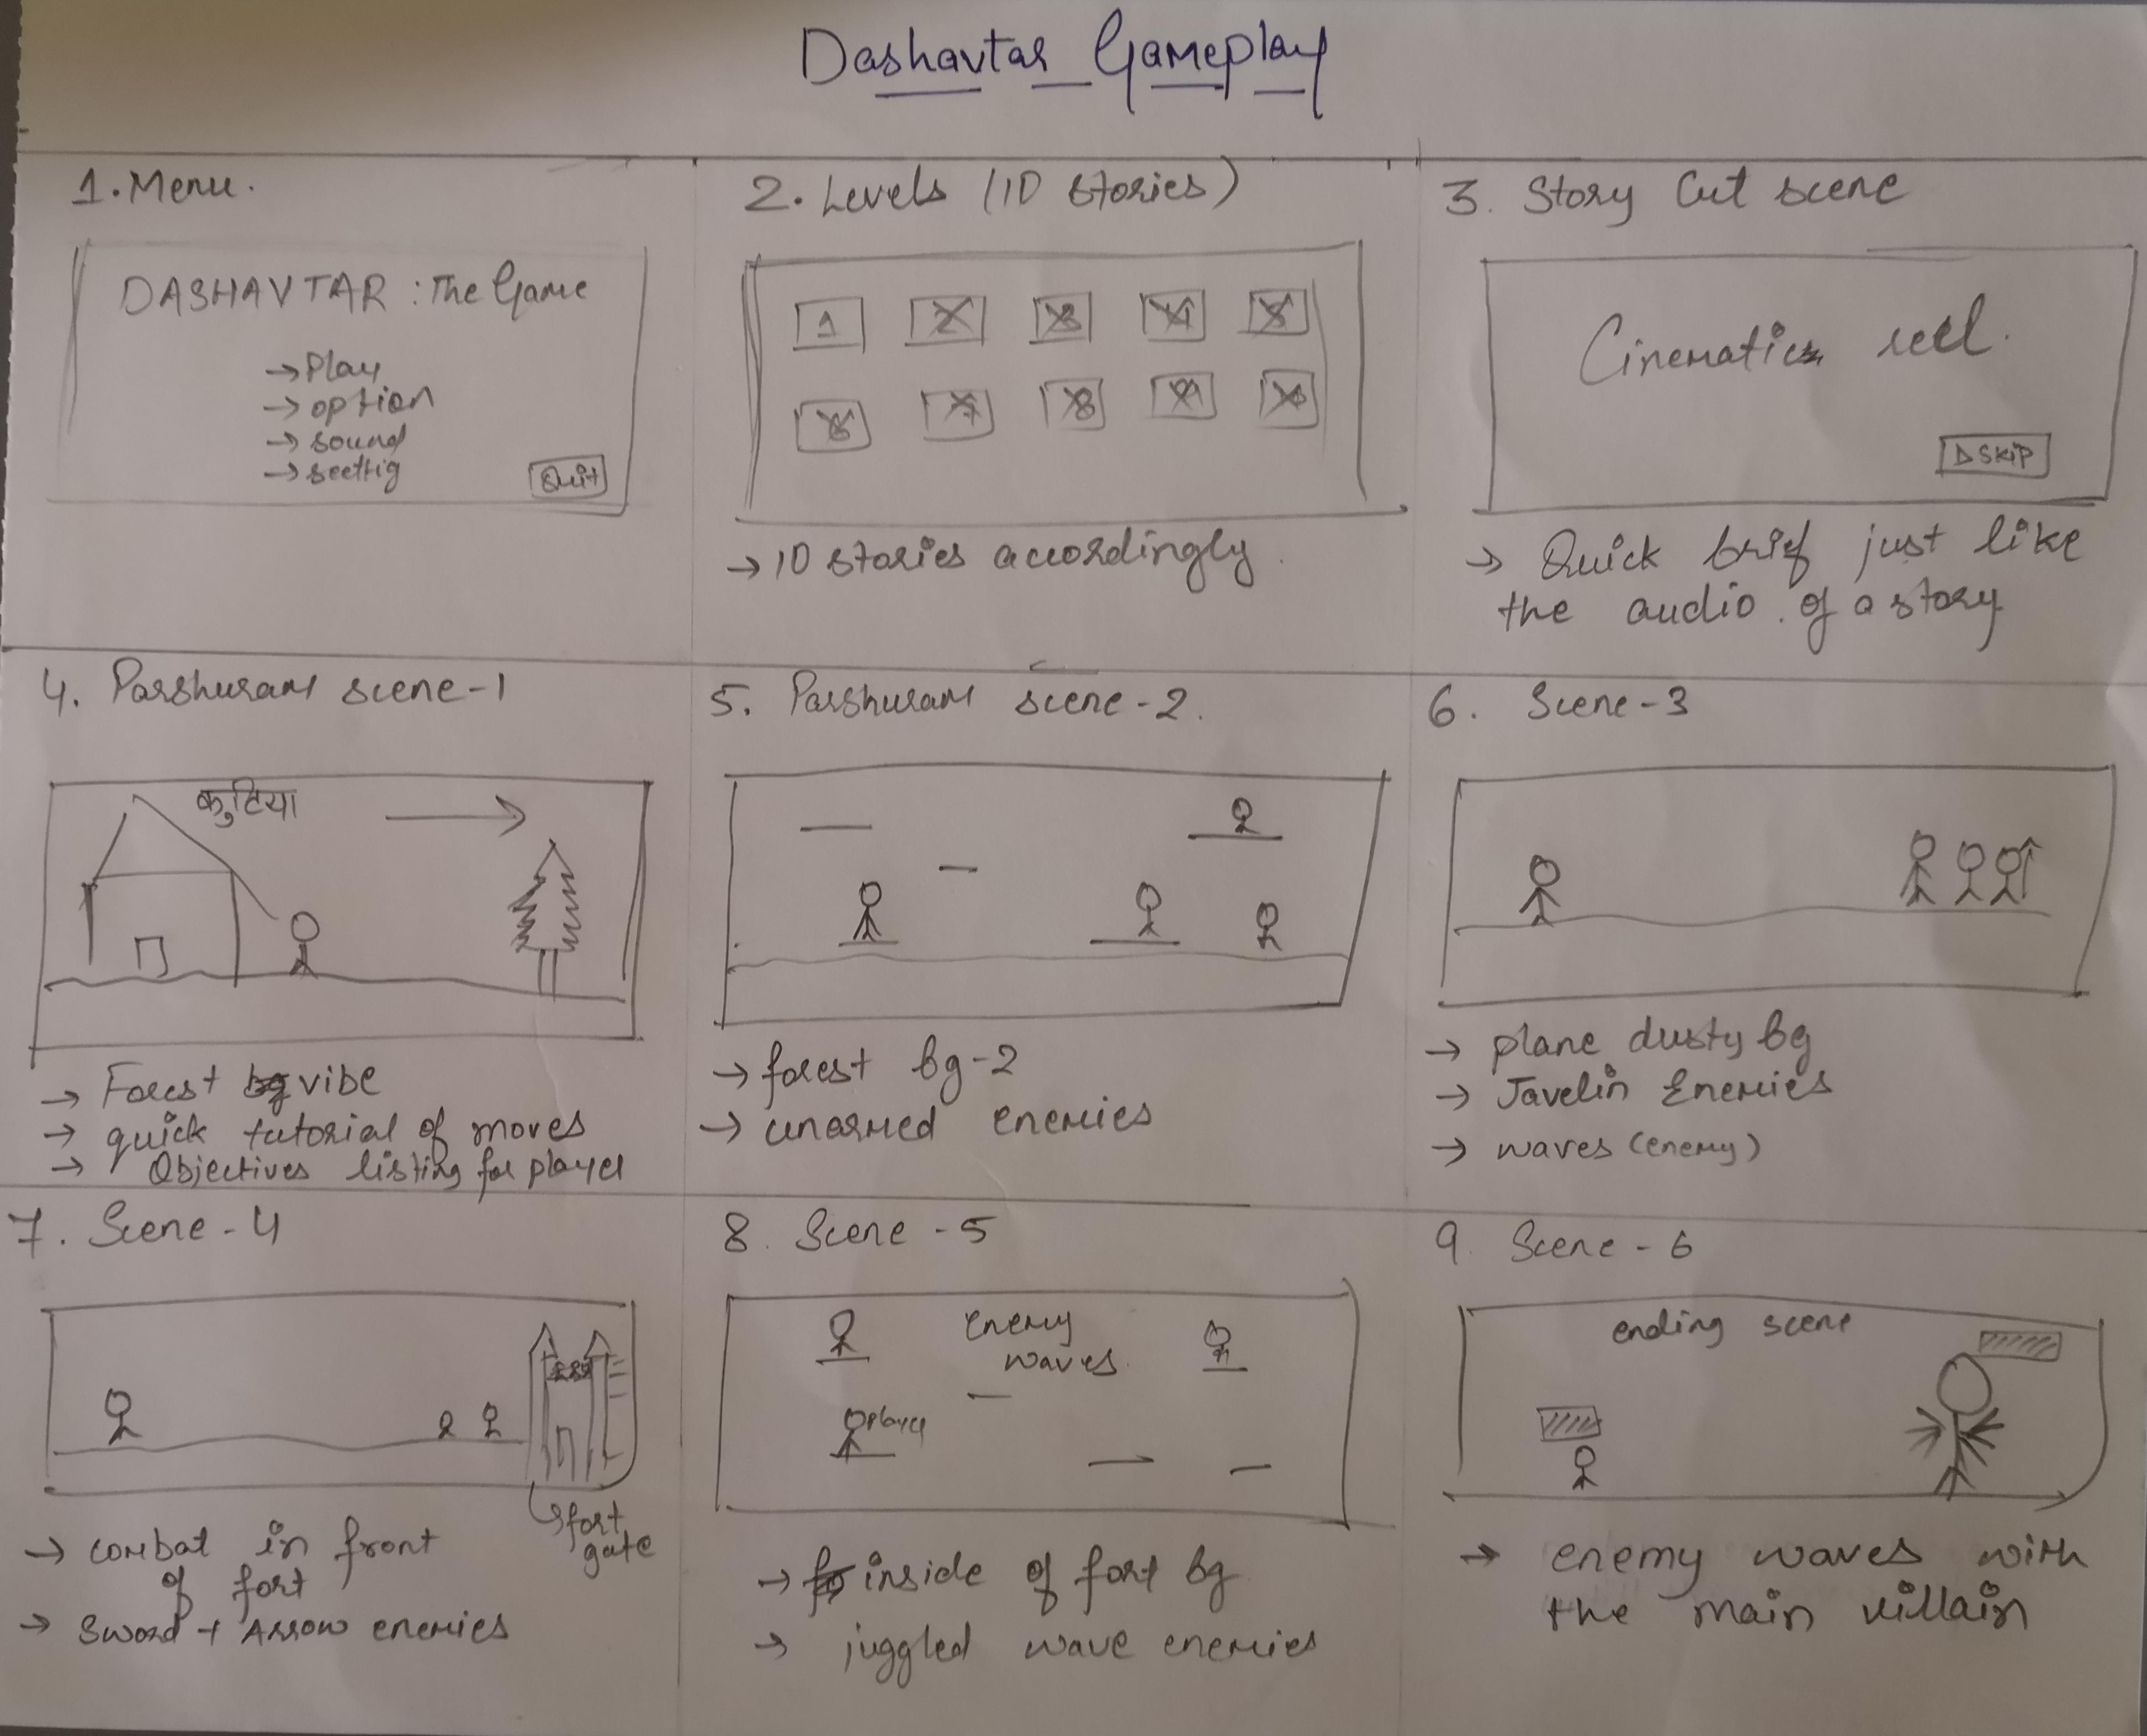 Dashavtar Gameplay
1. Menu.
DASHAVTAR : The Game
→ Play
→ option
→ sound
→ seettig
Quit
2. Levels (10 stories)
1 2 3 4 5
6 7 8 9 10
→ 10 stories accordingly.
3. Story Cut scene
Cinematics reel.
▷ SKIP
→ Quick brief just like
the audio of a story
4. Parshuram scene-1
कुटिया
→ Forest vibe
→ quick tutorial of moves
→ Objectives listing for player
5. Parshuram scene-2.
→ forest bg-2
→ unarmed enemies
6. Scene-3
→ plane dusty bg
→ Javelin Enemies
→ waves (enemy)
7. Scene-4
fort
gate
→ combat in front
of fort
→ Sword + Arrow enemies
8. Scene-5
Enemy
waves.
player
→ inside of fort bg
→ juggled wave enemies
9. Scene-6
ending scene
→ enemy waves with
the main villain